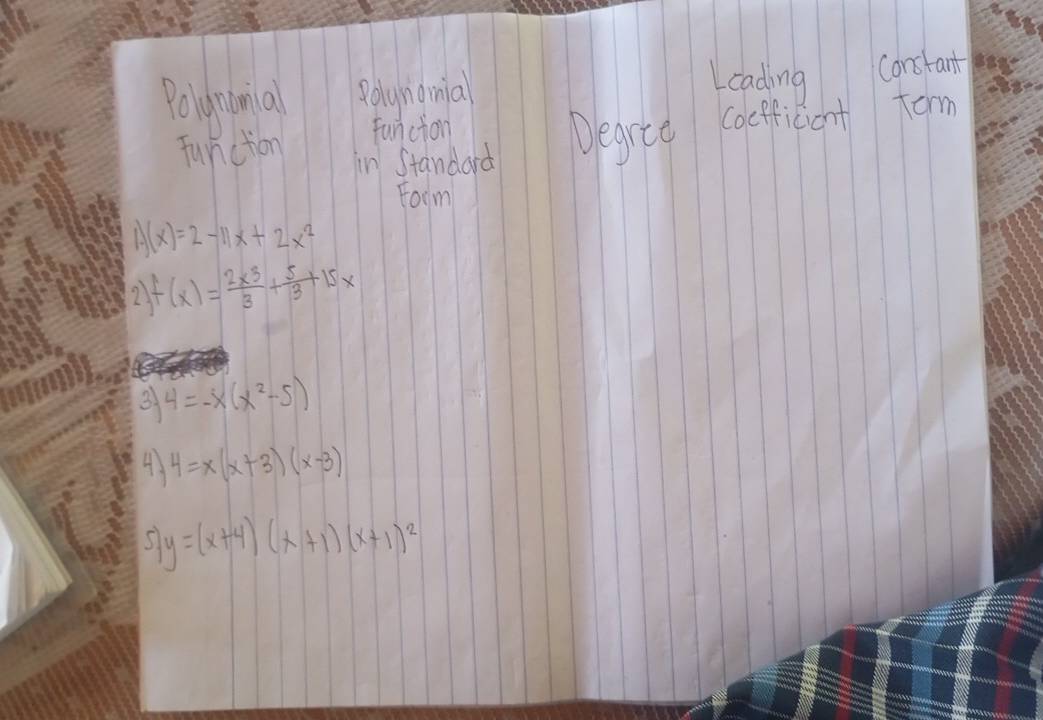 Polynomial Function
Polynomial Function in Standard Form
Degree
Leading Coefficient
Constant Term
1) (x)=2-11x+2x²
2) f(x)=2x³/3+5/3+15x
3) 4=-x(x²-5)
4) 4=x(x+3)(x-3)
5) y=(x+4)(x+1)(x+1)²